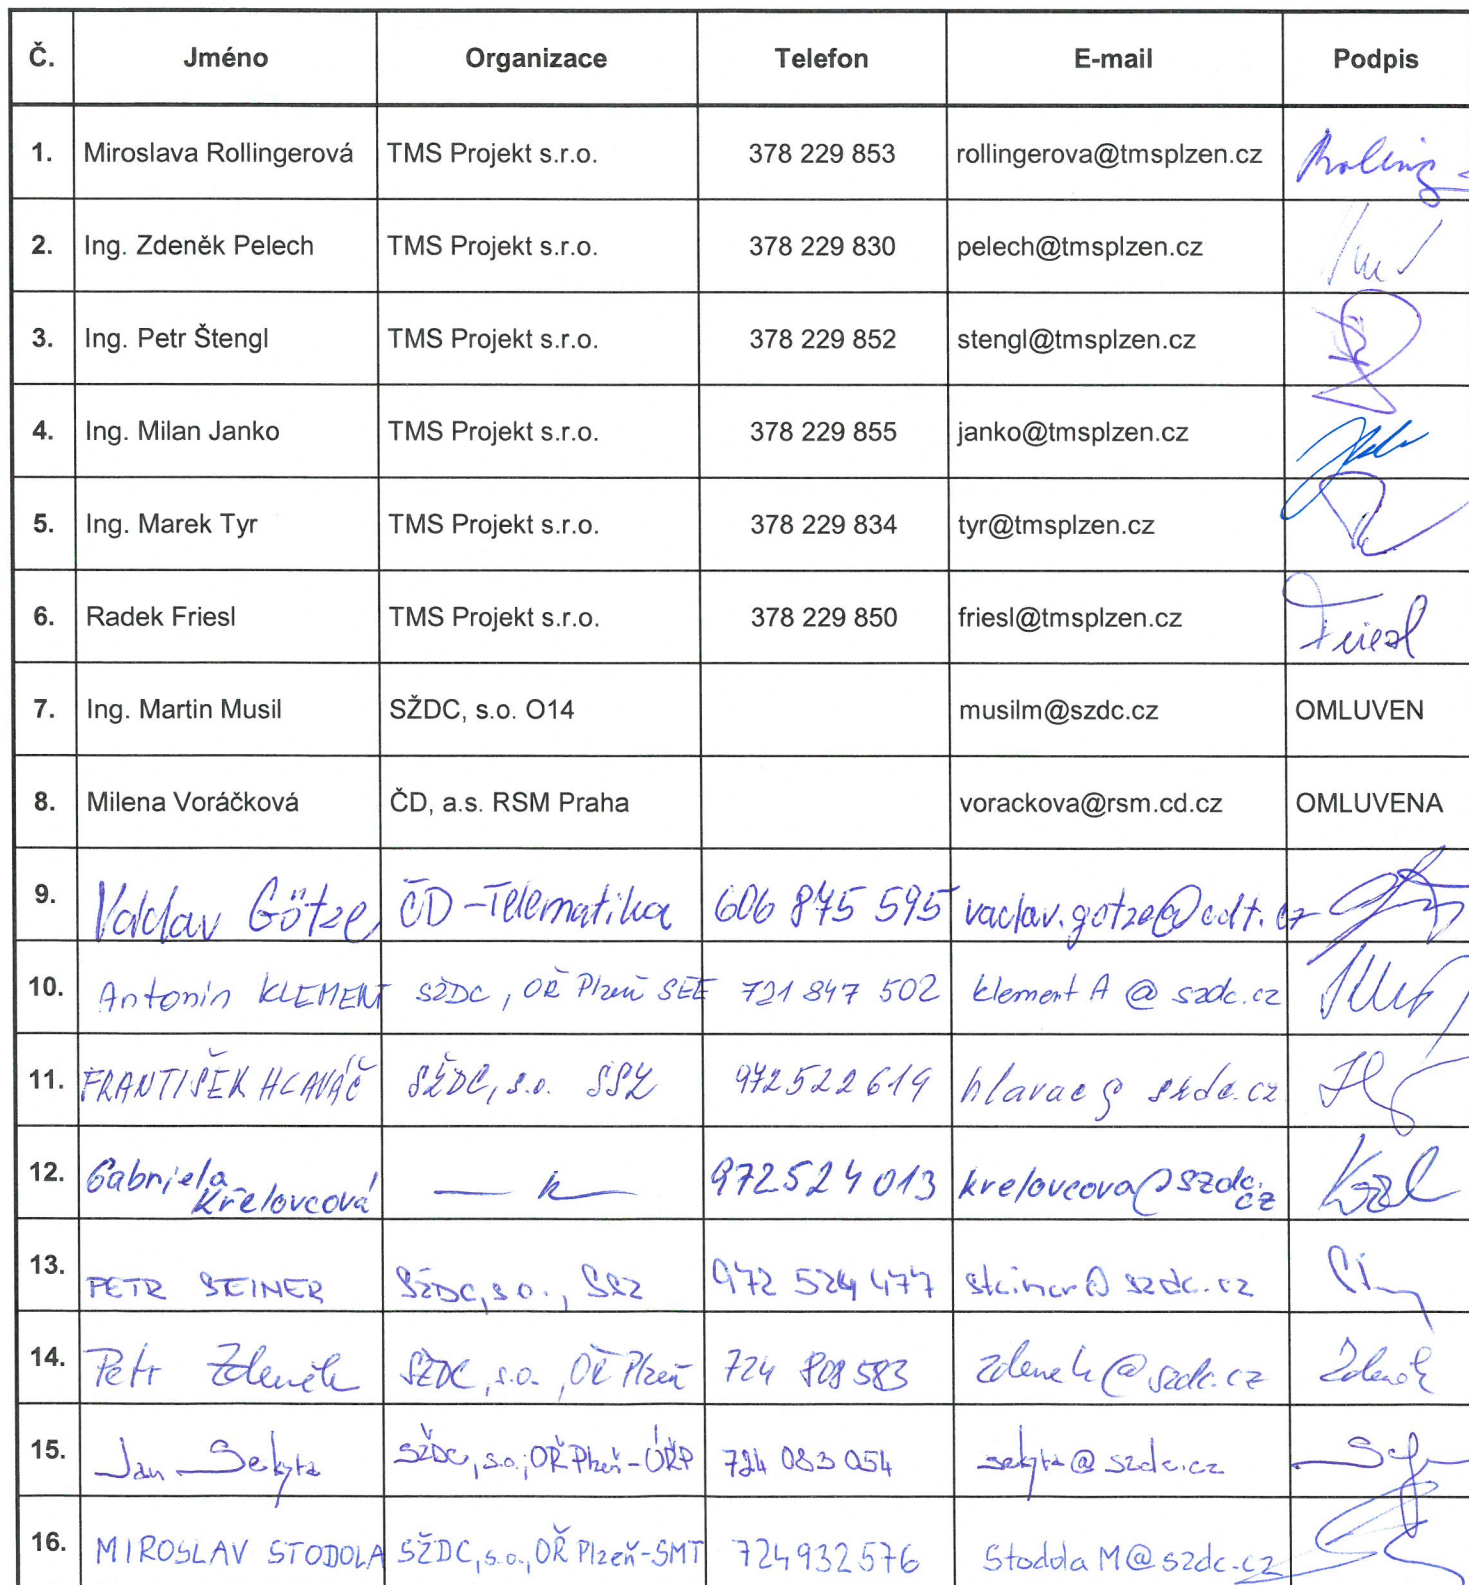 Č. Jméno Organizace Telefon E-mail Podpis
1. Miroslava Rollingerová TMS Projekt s.r.o. 378 229 853 rollingerova@tmsplzen.cz
2. Ing. Zdeněk Pelech TMS Projekt s.r.o. 378 229 830 pelech@tmsplzen.cz
3. Ing. Petr Štengl TMS Projekt s.r.o. 378 229 852 stengl@tmsplzen.cz
4. Ing. Milan Janko TMS Projekt s.r.o. 378 229 855 janko@tmsplzen.cz
5. Ing. Marek Tyr TMS Projekt s.r.o. 378 229 834 tyr@tmsplzen.cz
6. Radek Friesl TMS Projekt s.r.o. 378 229 850 friesl@tmsplzen.cz Friesl
7. Ing. Martin Musil SŽDC, s.o. O14 musilm@szdc.cz OMLUVEN
8. Milena Voráčková ČD, a.s. RSM Praha vorackova@rsm.cd.cz OMLUVENA
9. Václav Götze ČD-Telematika 606 845 595 vaclav.gotze@cdt.cz
10. Antonín KLEMENT SŽDC, OŘ Plzeň SEE 721 847 502 klement A @ szdc.cz
11. FRANTIŠEK HLAVÁČ SŽDC, s.o. SSZ 972522619 hlavac@szdc.cz
12. Gabriela 972524013 krelovcova@szdc.
Křelovcová cz
13. PETR STEINER SŽDC, s.o., SSZ 972 524 477 steiner@szdc.cz
14. Petr Zdeněk SŽDC, s.o., OŘ Plzeň 724 808 583 zdenek@szdc.cz Zdeněk
15. Jan Sekyra SŽDC, s.o., OŘ Plzeň-ÚŘP 724 083 054 sekyra@szdc.cz
16. MIROSLAV STODOLA SŽDC, s.o., OŘ Plzeň-SMT 724932576 Stodola M@szdc.cz